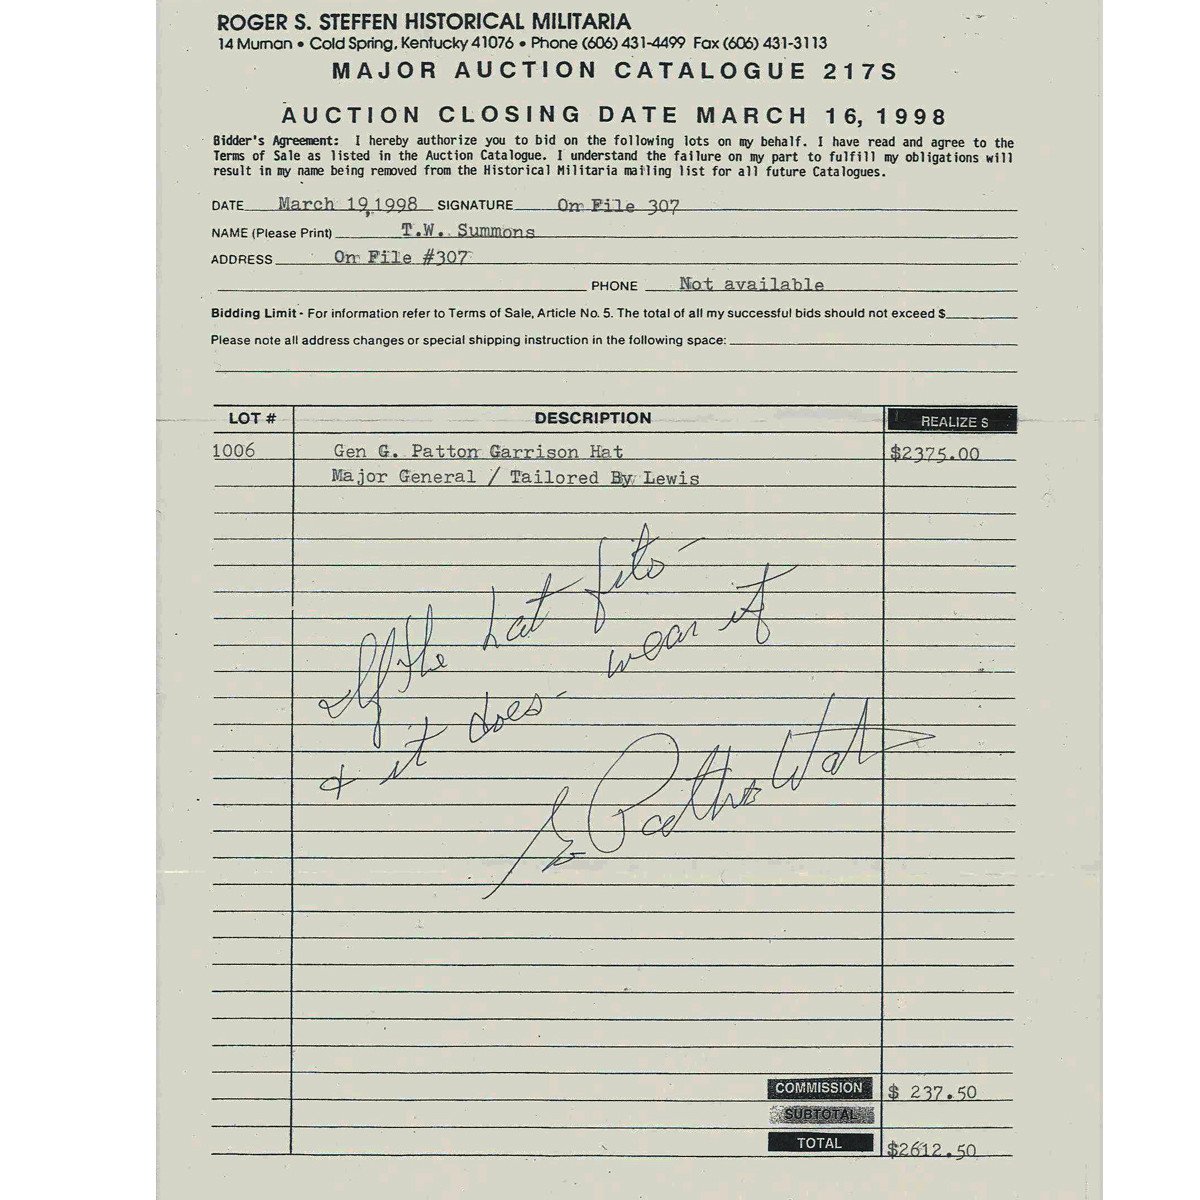 ROGER S. STEFFEN HISTORICAL MILITARIA
14 Murnan • Cold Spring, Kentucky 41076 • Phone (606) 431-4499 Fax (606) 431-3113
MAJOR AUCTION CATALOGUE 217S
AUCTION CLOSING DATE MARCH 16, 1998
Bidder's Agreement: I hereby authorize you to bid on the following lots on my behalf. I have read and agree to the
Terms of Sale as listed in the Auction Catalogue. I understand the failure on my part to fulfill my obligations will
result in my name being removed from the Historical Militaria mailing list for all future Catalogues.
DATE March 19,1998 SIGNATURE On File 307
NAME (Please Print) T.W. Summons
ADDRESS On File #307
PHONE Not available
Bidding Limit - For information refer to Terms of Sale, Article No. 5. The total of all my successful bids should not exceed $
Please note all address changes or special shipping instruction in the following space:
LOT # DESCRIPTION REALIZE $
1006 Gen G. Patton Garrison Hat $2375.00
Major General / Tailored By Lewis
If the hat fits -
wear it
& it does -
Patton's Hat
COMMISSION $ 237.50
SUBTOTAL
TOTAL $2612.50